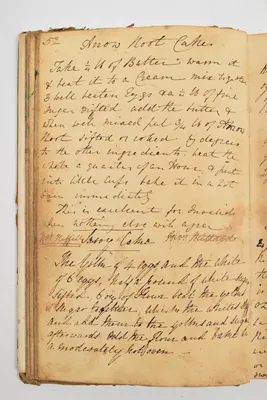 52
Arrow Root Cakes
Take ¼ lb of Butter warm it
& beat it to a Cream mix together
3 well beaten Eggs and ¼ lb of fine
Sugar sifted add the butter &
when well mixed put ¾ lb of Arrow
Root sifted or rolled by degrees
to the other ingredients beat the
whole a quarter of an Hour & put
into little Cups bake it in a hot
oven immediately
This is excellent for Invalids
when nothing else with agree
Savoy Cake
The Yolks of 4 eggs and the White
of 6 eggs, half a pound of white Sugar
Sifted 6 oz of flour beat the yolks
& Sugar together whisk the whites
and add them to the yolks and Sugar
afterwards add the flour and bake in
a moderately hot oven